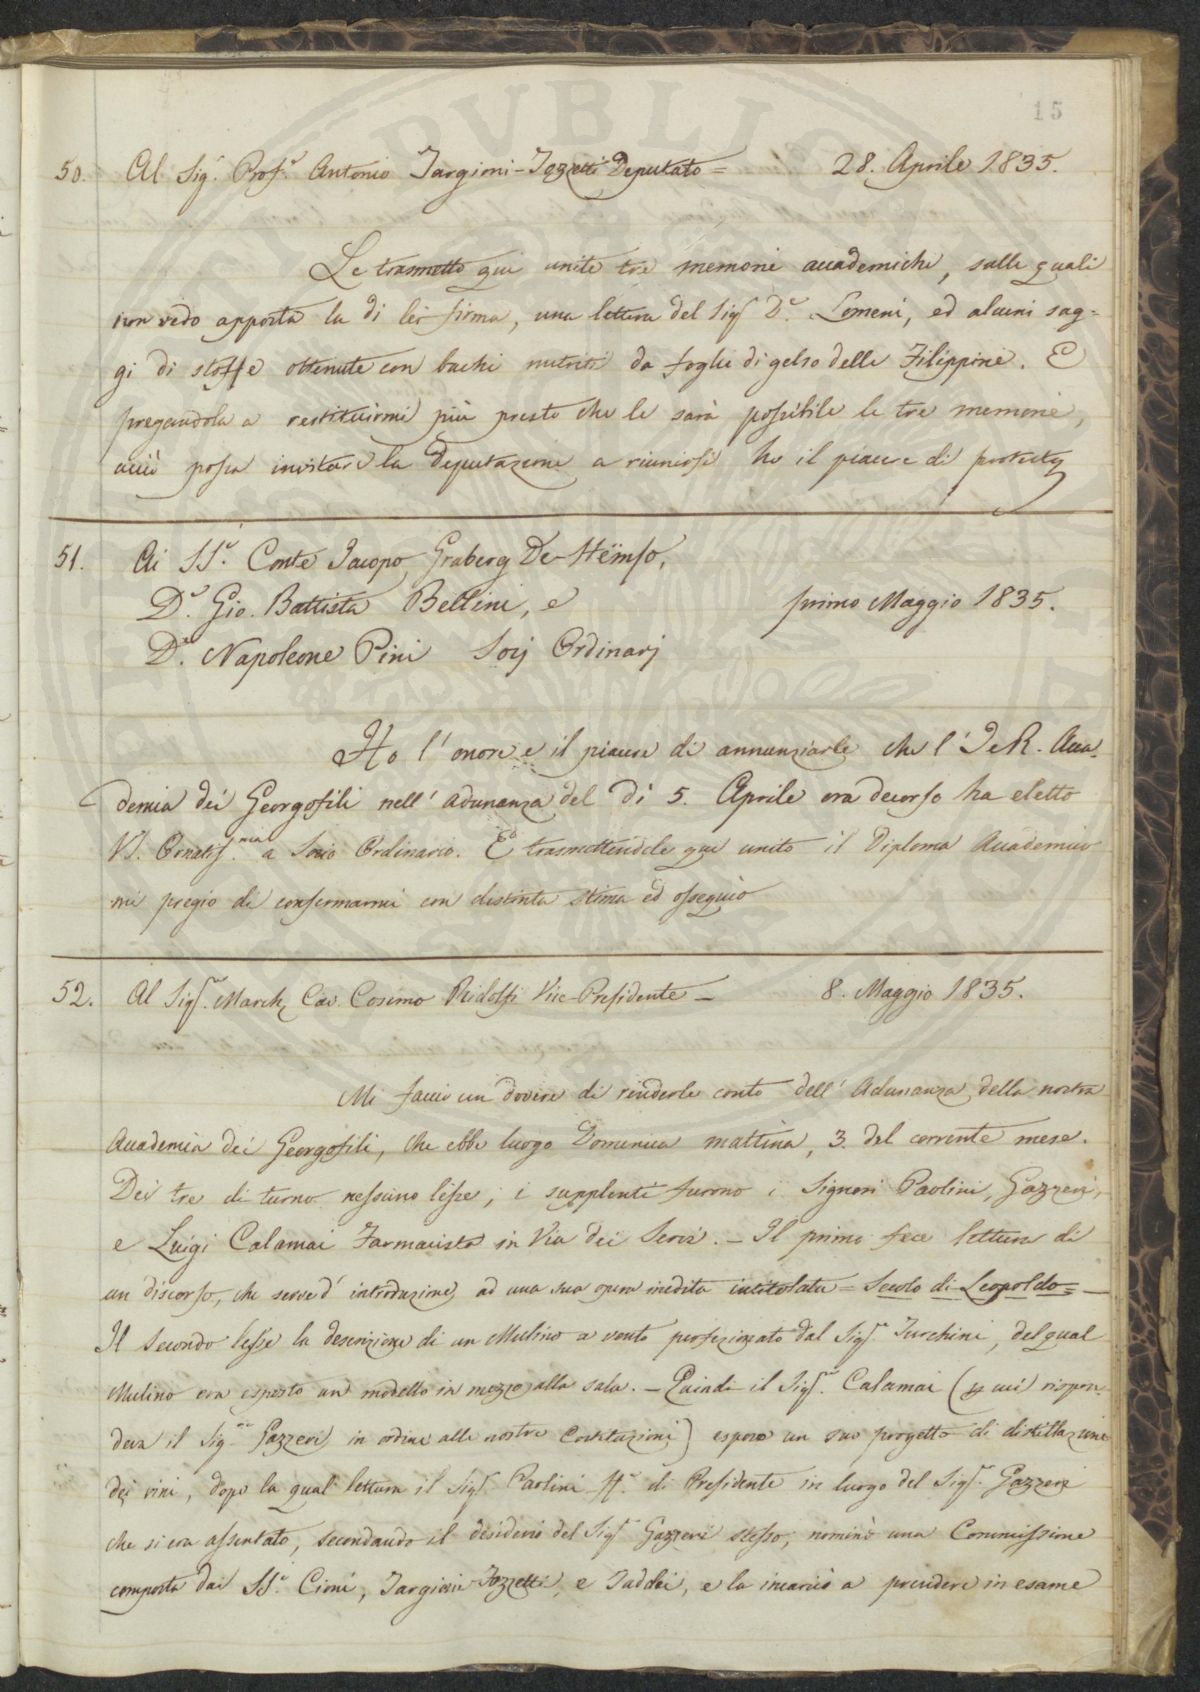 15
50. Al Sig.r Prof.r Antonio Targioni-Tozzetti Deputato = 28. Aprile 1835.
Le trasmetto qui unite tre memorie accademiche, sulle quali
non vedo apposta la di lei firma, una lettera del Sig.r D.r Lomeni, ed alcuni sag=
gi di stoffe ottenute con bachi nutriti da foglie di gelso delle Filippine. E
pregandola a restituirmi più presto che le sarà possibile le tre memorie,
acciò possa invitare la Deputazione a riunirsi ho il piacere di
51. Ai SS.ri Conte Jacopo Graberg De-Hëmso,
D.r Gio. Battista Bellini, e primo Maggio 1835.
D.r Napoleone Pini Socj Ordinarj
Ho l'onore e il piacere di annunziarle che l'I e R. Acca=
demia dei Georgofili nell'adunanza del dì 5. Aprile ora decorso ha eletto
VS. Ornatiss.ma a Socio Ordinario. E trasmettendole qui unito il Diploma Accademico
mi pregio di confermarmi con distinta stima ed ossequio
52. Al Sig.r March. Cav. Cosimo Ridolfi Vice-Presidente — 8. Maggio 1835.
Mi faccio un dovere di renderle conto dell'Adunanza della nostra
Accademia dei Georgofili, che ebbe luogo Domenica mattina, 3. del corrente mese.
Dei tre di turno nessuno lesse; i supplenti furono i Signori Paolini, Gazzeri,
e Luigi Calamai Farmacista in Via dei Servi. — Il primo fece lettura di
un discorso, che serve d'introduzione ad una sua opera inedita intitolata = Secolo di Leopoldo = —
Il secondo lesse la descrizione di un Mulino a vento perfezionato dal Sig.r Turchini, del qual
Mulino era esposto un modello in mezzo alla sala. — Quindi il Sig.r Calamai (p cui rispon=
deva il Sig.r Gazzeri in ordine alle nostre Costituzioni) espose un suo progetto di distillazione
dei vini, dopo la qual lettura il Sig.r Paolini ff.e di Presidente in luogo del Sig.r Gazzeri
che si era assentato, secondando il desiderio del Sig.r Gazzeri stesso, nominò una Commissione
composta dai SS.ri Cioni, Targioni-Tozzetti, e Taddei, e la incaricò a prendere in esame